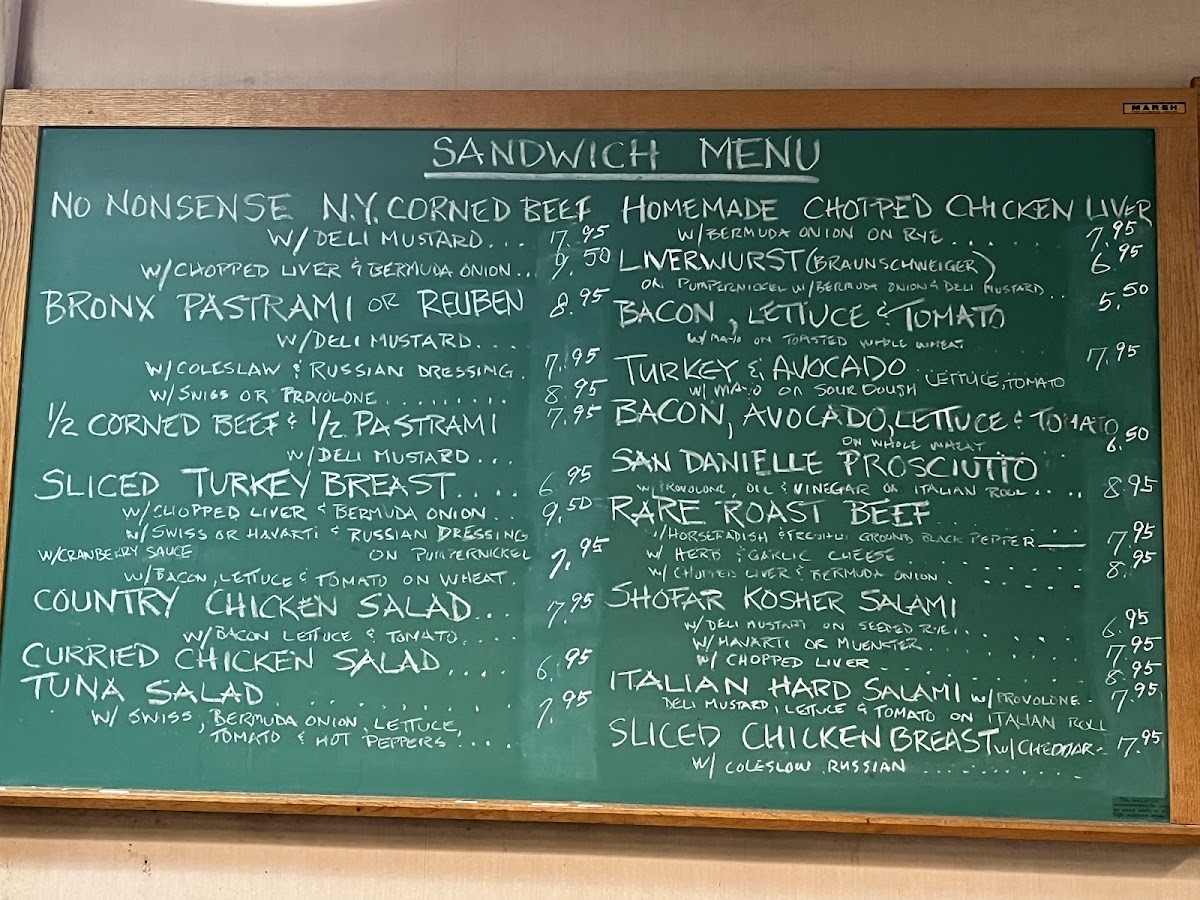 MARSH
SANDWICH MENU
NO NONSENSE N.Y. CORNED BEEF
W/DELI MUSTARD... 7.95
W/CHOPPED LIVER & BERMUDA ONION... 9.50
BRONX PASTRAMI OR REUBEN 8.95
W/DELI MUSTARD...
W/COLESLAW & RUSSIAN DRESSING. 7.95
W/SWISS OR PROVOLONE.......... 8.95
1/2 CORNED BEEF & 1/2 PASTRAMI 7.95
W/DELI MUSTARD....
SLICED TURKEY BREAST.... 6.95
W/CHOPPED LIVER & BERMUDA ONION... 9.50
W/SWISS OR HAVARTI & RUSSIAN DRESSING
W/CRANBERRY SAUCE ON PUMPERNICKEL 7.95
W/BACON, LETTUCE & TOMATO ON WHEAT.
COUNTRY CHICKEN SALAD... 7.95
W/BACON LETTUCE & TOMATO.....
CURRIED CHICKEN SALAD.... 6.95
TUNA SALAD.......... 7.95
W/ SWISS, BERMUDA ONION, LETTUCE,
TOMATO & HOT PEPPERS....
HOMEMADE CHOPPED CHICKEN LIVER
W/BERMUDA ONION ON RYE...... 7.95
LIVERWURST (BRAUNSCHWEIGER) 6.95
ON PUMPERNICKEL W/BERMUDA ONION & DELI MUSTARD...
BACON, LETTUCE & TOMATO 5.50
W/MAYO ON TOASTED WHOLE WHEAT
TURKEY & AVOCADO LETTUCE, TOMATO 7.95
W/ MAYO ON SOUR DOUGH
BACON, AVOCADO, LETTUCE & TOMATO 6.50
ON WHOLE WHEAT
SAN DANIELLE PROSCIUTTO
W/PROVOLONE, OIL & VINEGAR ON ITALIAN ROLL.... 8.95
RARE ROAST BEEF
W/HORSERADISH & GROUND BLACK PEPPER 7.95
W/ HERB & GARLIC CHEESE 8.95
W/ CHOPPED LIVER & BERMUDA ONION.
SHOFAR KOSHER SALAMI
W/DELI MUSTARD ON SEEDED RYE...... 6.95
W/HAVARTI OR MUENSTER...... 7.95
W/ CHOPPED LIVER...... 8.95
ITALIAN HARD SALAMI W/PROVOLONE- 7.95
DELI MUSTARD, LETTUCE & TOMATO ON ITALIAN ROLL
SLICED CHICKEN BREAST W/CHEDDAR- 7.95
W/ COLESLOW RUSSIAN ..........